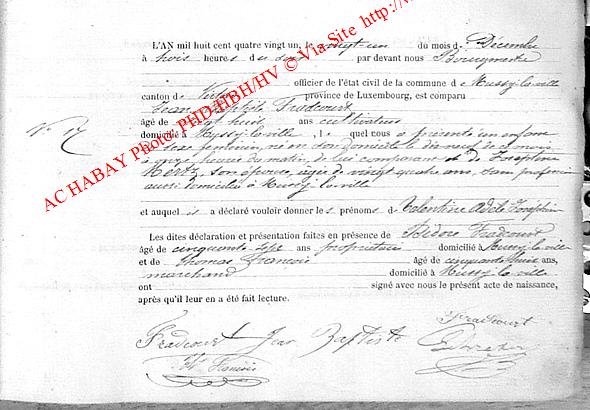 L'AN mil huit cent quatre vingt un, le vingt-un du mois de Décembre
à trois heures du soir par devant nous
officier de l'état civil de la commune d e Mussy-la-ville
canton de Virton province de Luxembourg, est comparu
Jean Baptiste Fradcourt
âgé de vingt huit ans cultivateur
domicilié à Mussy-la-ville, le quel nous a présenté un enfant
du sexe féminin, né en son domicile le dix neuf de ce mois
à onze heures du matin, de lui comparant et de Joséphine
Mertz, son épouse, âgée de vingt quatre ans, sans profession
aussi domiciliée à Mussy-la-ville
et auquel il a déclaré vouloir donner les prénoms d e Valentine Adèle Joséphine
Les dites déclaration et présentation faites en présence de Fradcourt
âgé de cinquante sept ans propriétaire domicilié à Mussy-la-ville
et de Thomas François âgé de cinquante huit ans,
marchand domicilié à Mussy-la-ville
ont signé avec nous le présent acte de naissance,
après qu'il leur en a été fait lecture.
N° 17
AC HABAY Photo PHD/HBH/HV © Via-Site http://
Fradcourt Jean Baptiste Fradcourt